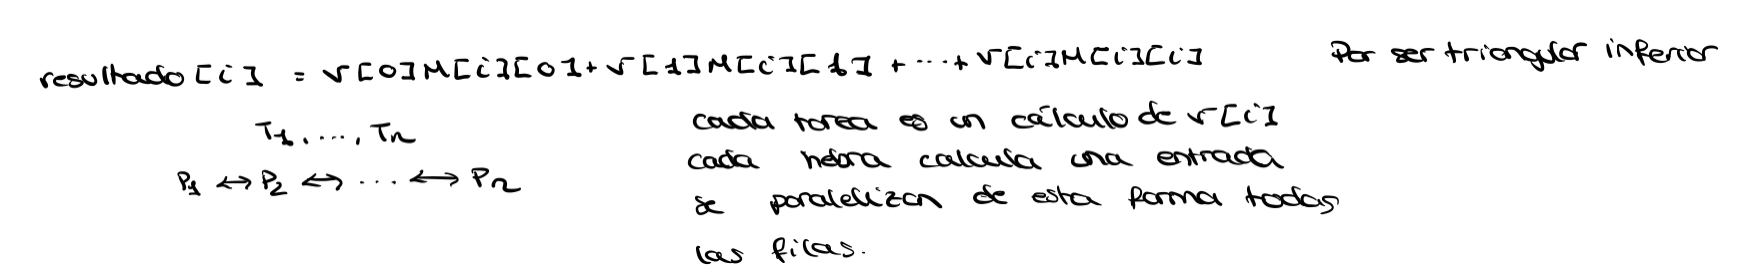 resultado[i] = v[0]M[i][0]+v[1]M[i][1] + ... + v[i]M[i][i] Por ser triangular inferior
T1, ..., Tn cada tarea es un cálculo de v[i]
cada hebra calcula una entrada
P1 ↔ P2 ↔ ... ↔ Pn se paralelizan de esta forma todas
las filas.